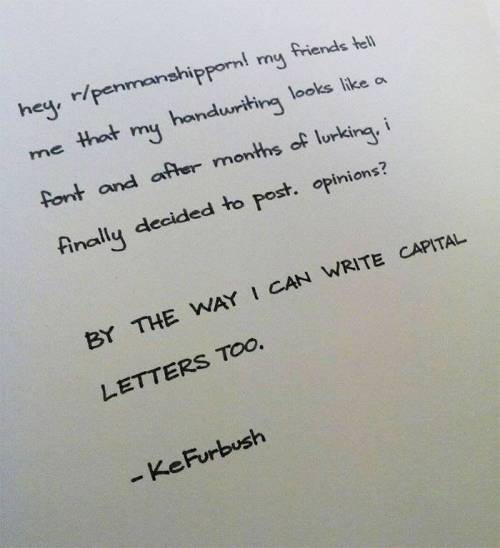 hey, r/penmanshipporn! my friends tell
me that my handwriting looks like a
font and after months of lurking, i
finally decided to post. opinions?
BY THE WAY I CAN WRITE CAPITAL
LETTERS TOO.
- KeFurbush